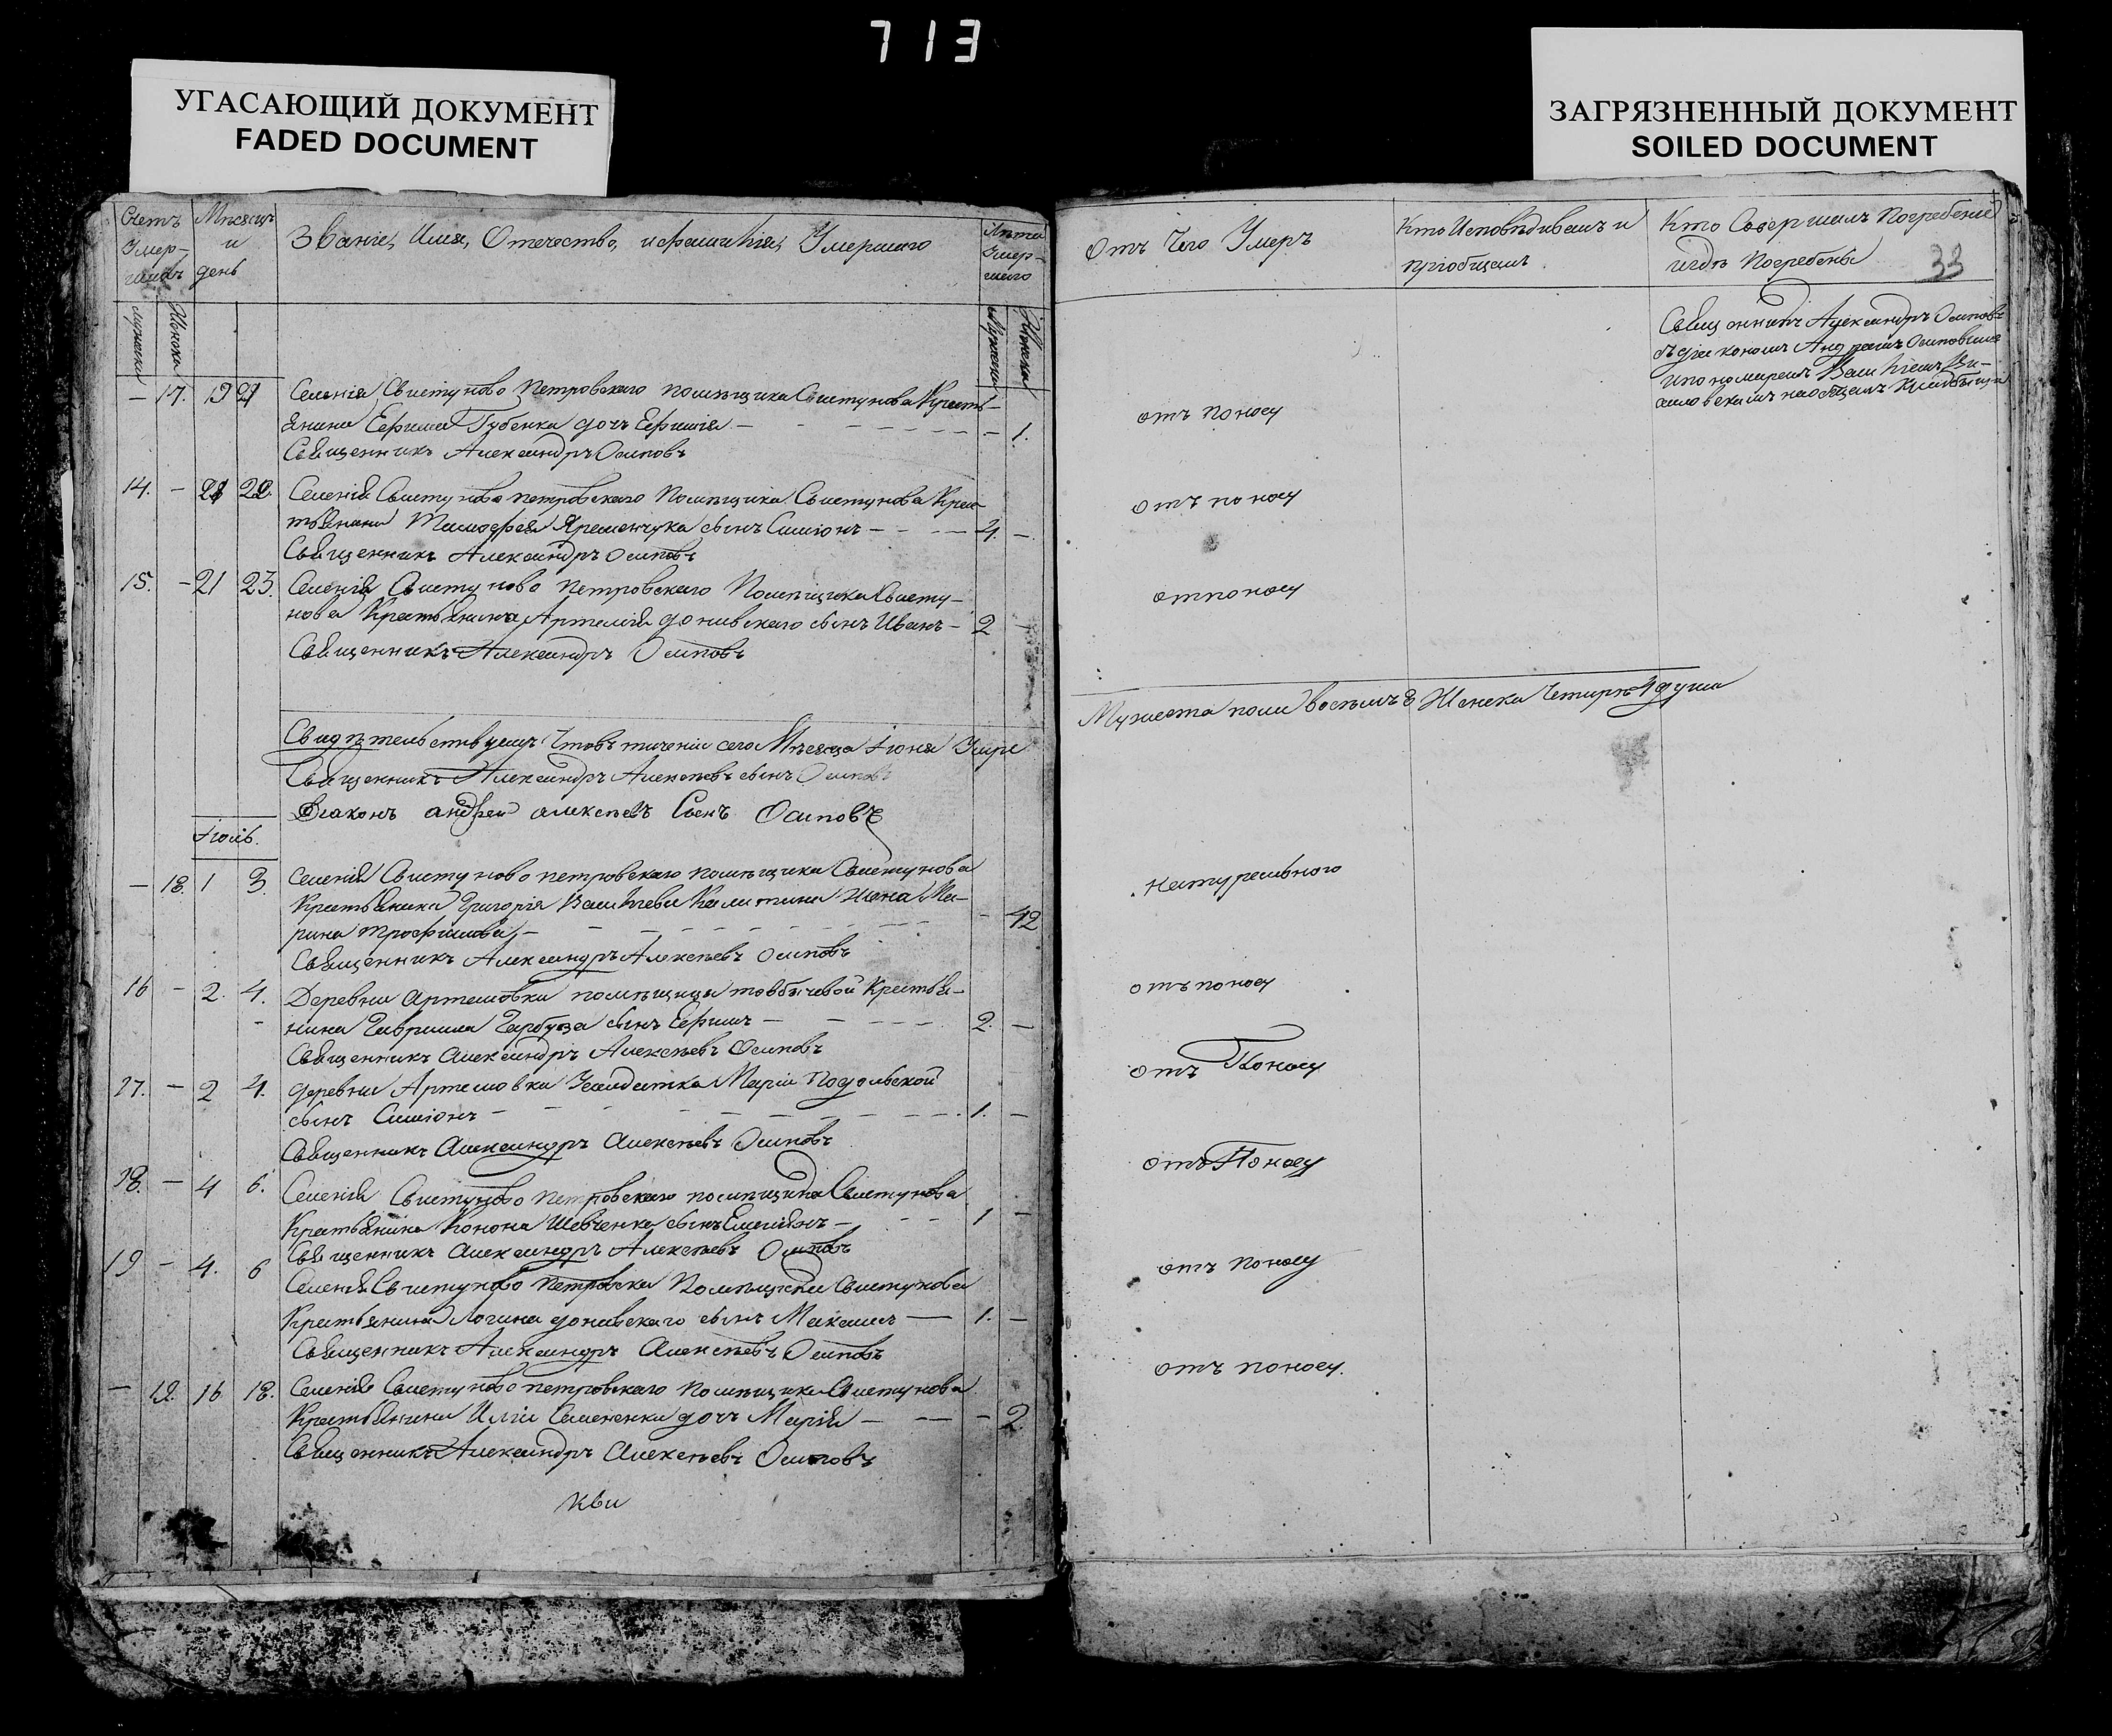 713
УГАСАЮЩИЙ ДОКУМЕНТ
FADED DOCUMENT
ЗАГРЯЗНЕННЫЙ ДОКУМЕНТ
SOILED DOCUMENT
Счетъ Умер-шихъ
Мѣсяцъ и день
Званіе, Имя, Отечество, и фамилія, Умершаго
Лѣта Умер-шаго
мужески Женски
Мужеска Женска
— 17. 19 21 Селенія Свистуново Петровскаго помѣщика Свистунова Кресть-
янина Ефима Губенка дочъ Ефимія — — 1.
Священникъ Александръ Осиповъ
14. — 21 22. Селенія Свистуново петровскаго Помѣщика Свистунова Крес
тьянина Тимофея Яременчука сынъ Симіонъ — 4. —
Священникъ Александръ Осиповъ
15. — 21 23. Селенія Свистуново Петровскаго Помѣщика Свисту-
нова Крестьянина Артемія донивскаго сынъ Иванъ — 2 —
Священникъ Александръ Осиповъ
Свидѣтельствуемъ Чтовъ теченіи сего Мѣсяца Іюня Умре
Священникъ Александръ Алексѣевъ сынъ Осиповъ
Діаконъ андрей алексѣевъ Сынъ Осиповъ
Іюль.
— 18. 1 3. Селенія Свистуново петровскаго помѣщика Свистунова
Крестьянина Григорія Васильева Калитина Жена Ма-
рина трофимова, — — 42
Священникъ Александръ Алексѣевъ Осиповъ
16 — 2. 4. Деревни Артемовки помѣщицы товбичевой Крестья-
нина Гаврила Гарбуза сынъ Ефимъ — 2. —
Священникъ Александръ Алексѣевъ Осиповъ
17. — 2 4. деревни Артемовки Солдатка Маріи Подольской
сынъ Симіонъ — 1. —
Священникъ Александръ Алексѣевъ Осиповъ
18. — 4 6. Селенія Свистуново Петровскаго помѣщика Свистунова
Крестьянина Конона Шевченка сынъ Емеліянъ — 1 —
Священникъ Александръ Алексѣевъ Осиповъ
19 — 4. 6 Селенія Свистуново Петровска Помѣщика Свистунова
Крестьянина Логина донивскаго сынъ Максимъ — 1. —
Священникъ Александръ Алексѣевъ Осиповъ
— 19. 16 18. Селенія Свистуново петровскаго Помѣщика Свистунова
Крестьянина Иліи Семененка дочъ Марія — — 2
Священникъ Александръ Алексѣевъ Осиповъ
Отъ Чего Умеръ
Кто Исповѣдивалъ и пріобщалъ
Кто Совершалъ Погребеніе
игдѣ Погребены
33
Священникъ Александръ Осиповъ
съ діакономъ Андреемъ Осиповимъ
ипономаремъ
наобщемъ Кладбищи
отъ поносу
отъ поносу
отпоносу
Мужеска пола восѣмъ 8 Женска Четирѣ 4 душа
Натурального
отъ поносу
отъ Поносу
отъ Поносу
отъ Поносу
отъ поносу.